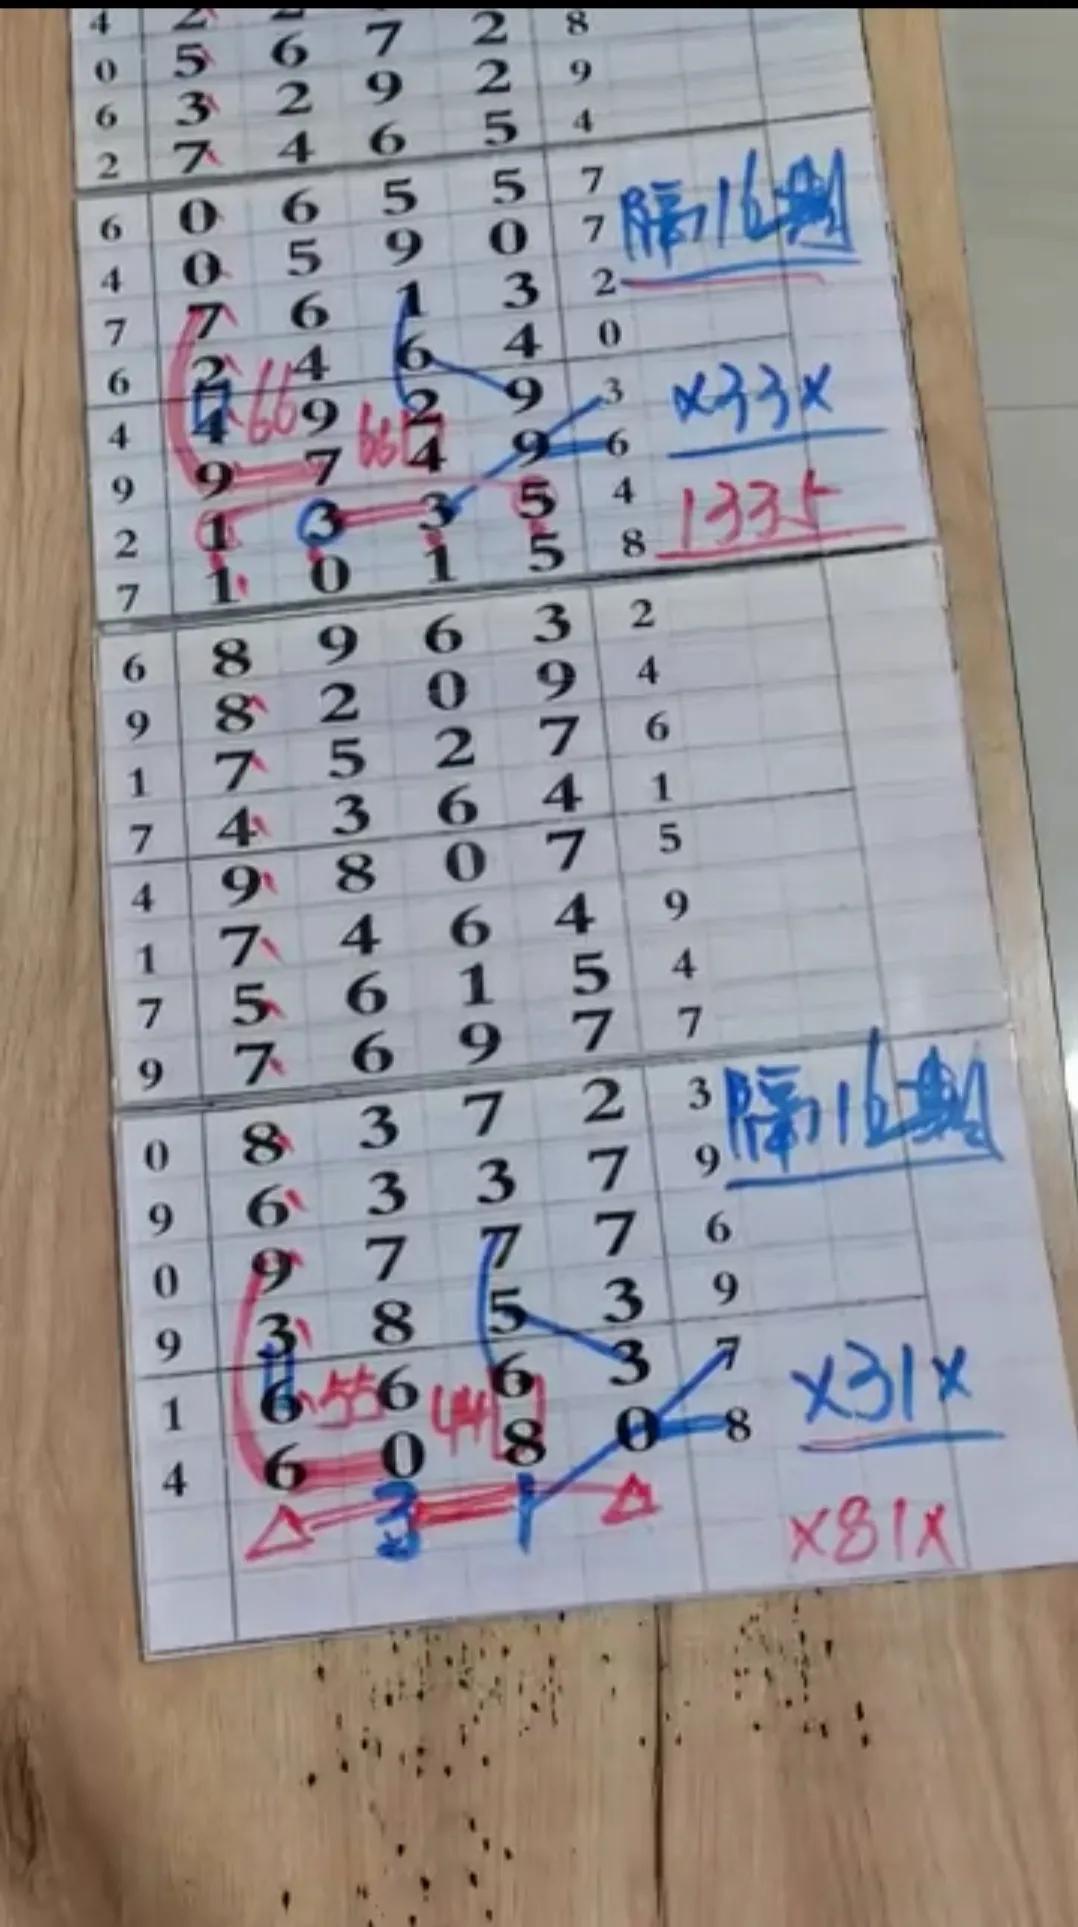 4 2 2
0 5 6 7 2 8
6 3 2 9 2 9
2 7 4 6 5 4
6 0 6 5 5 7
4 0 5 9 0 7 隔16期
7 7 6 1 3 2
6 2 4 6 4 0
4 4 66 9 2 9 3 x33x
9 9 7 661 4 9 6
2 1 3 3 5 4 1335
7 1 0 1 5 8
6 8 9 6 3 2
9 8 2 0 9 4
1 7 5 2 7 6
7 4 3 6 4 1
4 9 8 0 7 5
1 7 4 6 4 9
7 5 6 1 5 4
9 7 6 9 7 7
0 8 3 7 2 3 隔16期
9 6 3 3 7 9
0 9 7 7 7 6
9 3 8 5 3 9
1 6 55 6 6 3 7 x31x
4 6 0 44 8 0 8
△ 3 1 △ x81x